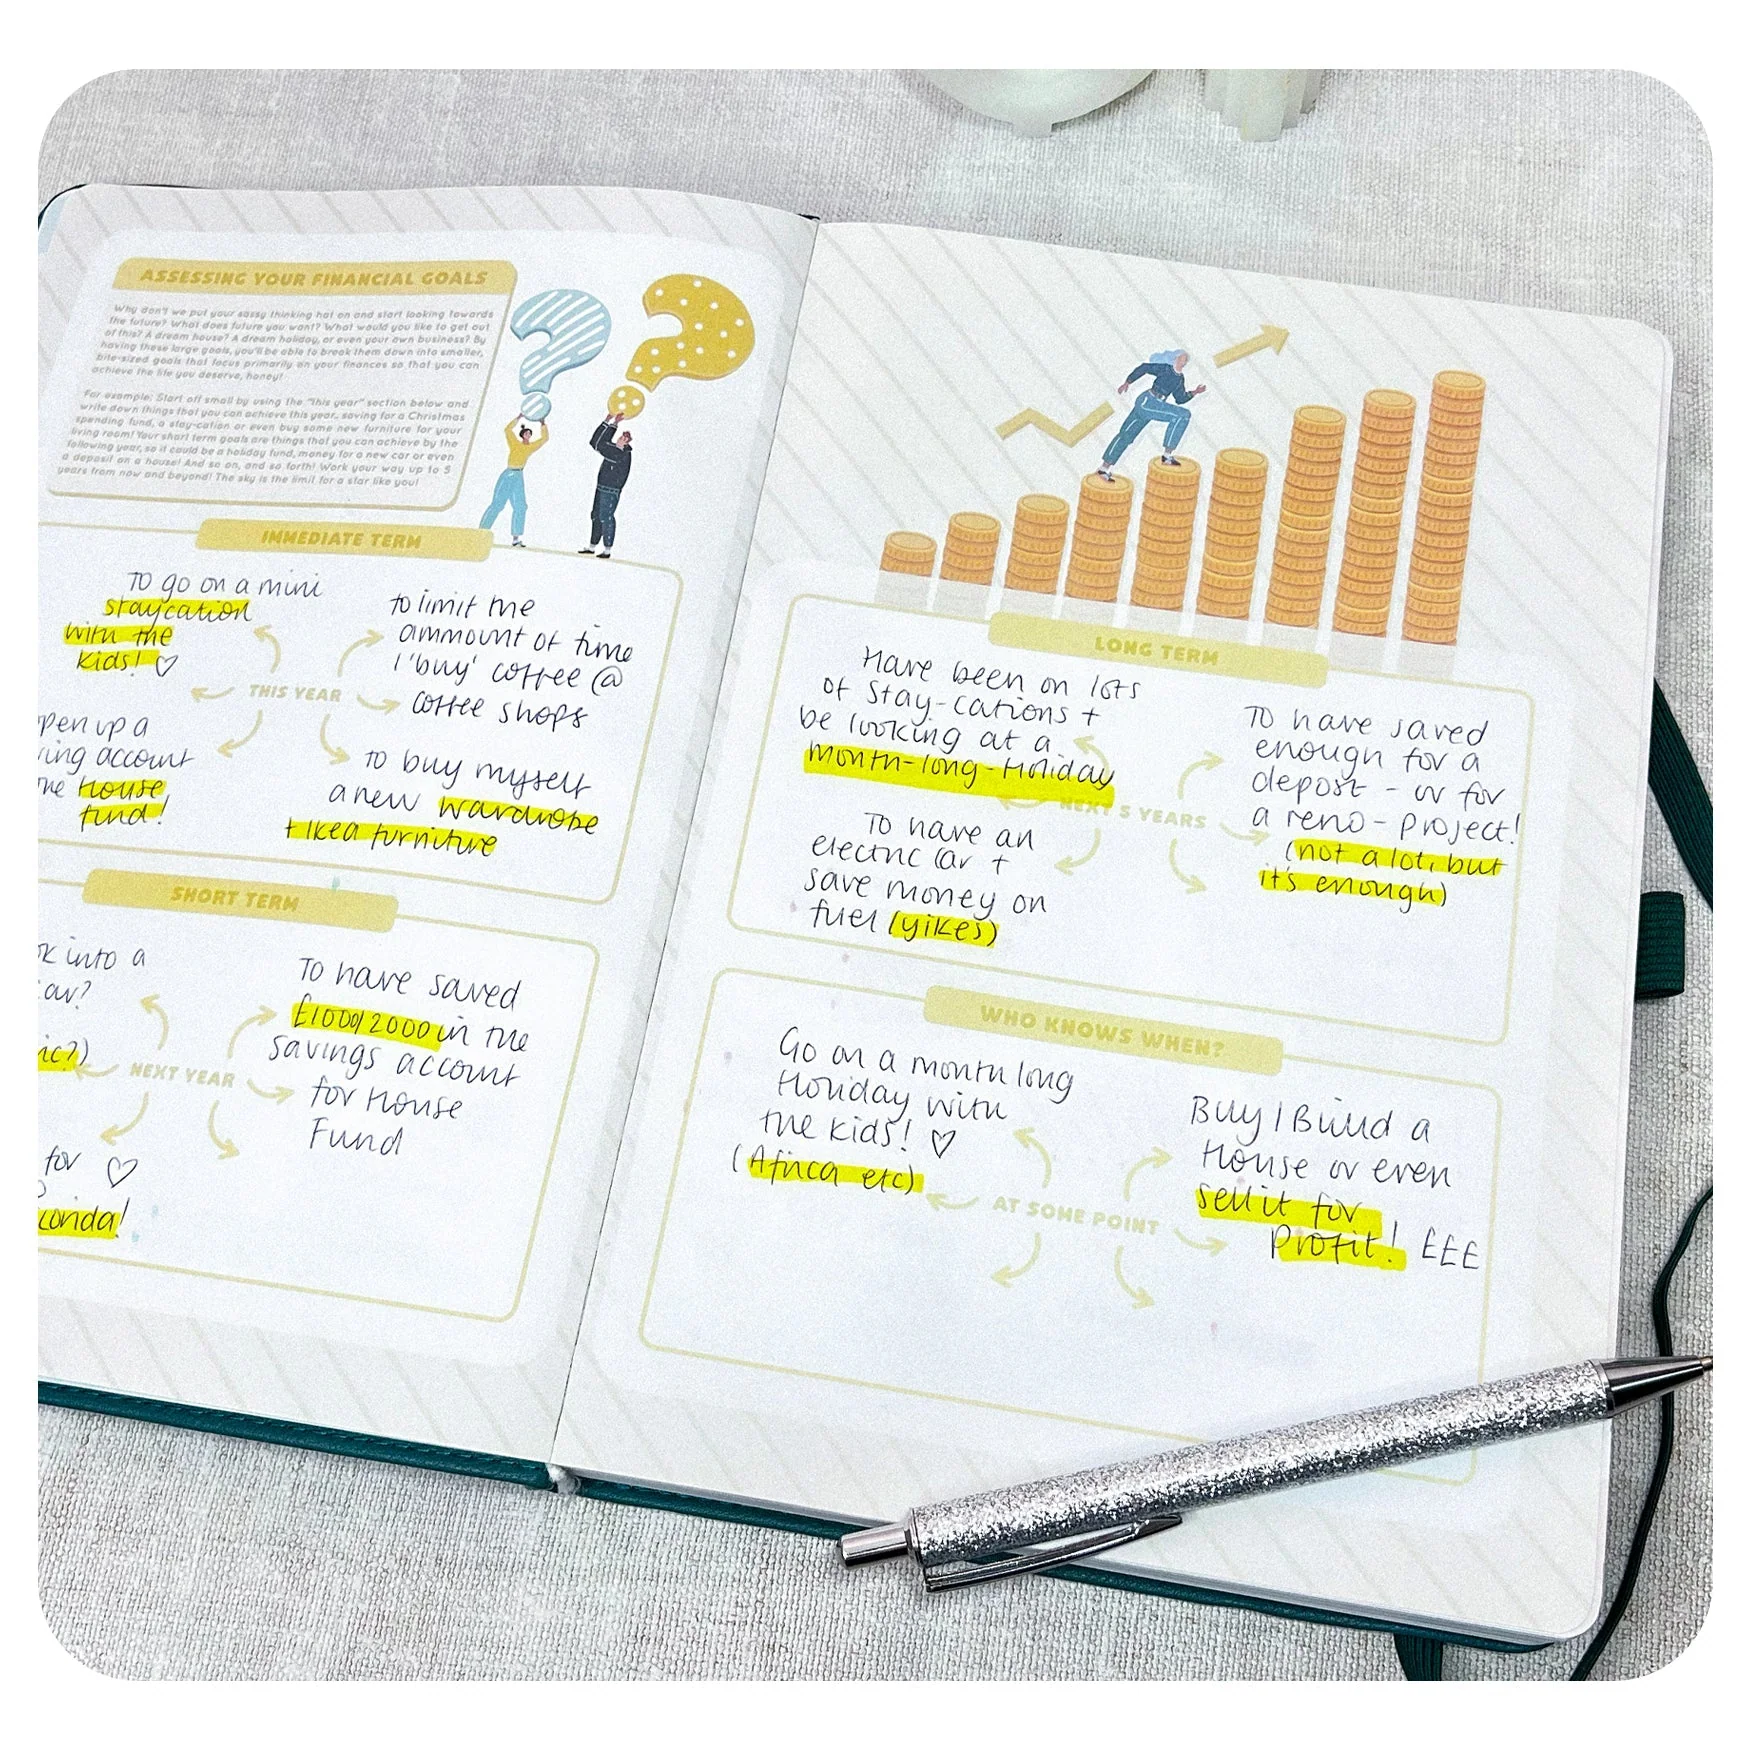 ASSESSING YOUR FINANCIAL GOALS
Why don't we put your sassy thinking hat on and start looking towards
the future? What does future you want? What would you like to get out
of this? A dream house? A dream holiday, or even your own business? By
having these large goals, you'll be able to break them down into smaller,
bite-sized goals that focus primarily on your finances so that you can
achieve the life you deserve, honey!
For example: Start off small by using the "this year" section below and
write down things that you can achieve this year.. saving for a Christmas
spending fund, a stay-cation or even buy some new furniture for your
living room! Your short term goals are things that you can achieve by the
following year, so it could be a holiday fund, money for a new car or even
a deposit on a house! And so on, and so forth! Work your way up to 5
years from now and beyond! The sky is the limit for a star like you!
IMMEDIATE TERM
To go on a mini
staycation
with the
kids! ♡
to limit the
ammount of time
I 'buy' coffee @
coffee shops
THIS YEAR
pen up a
ing account
house
fund!
to buy myself
a new wardrobe
+ Ikea furniture
SHORT TERM
into a
To have saved
£1000/2000 in the
savings account
for House
Fund
NEXT YEAR
for ♡
LONG TERM
Have been on lots
of stay-cations +
be looking at a
month-long-Holiday
To have saved
enough for a
depost - or for
a reno-project!
(not a lot, but
it's enough)
NEXT 5 YEARS
To have an
electric car +
save money on
fuel (yikes)
WHO KNOWS WHEN?
Go on a month long
Holiday with
the kids! ♡
(Africa etc)
Buy / Build a
House or even
sell it for
Profit! £££
AT SOME POINT